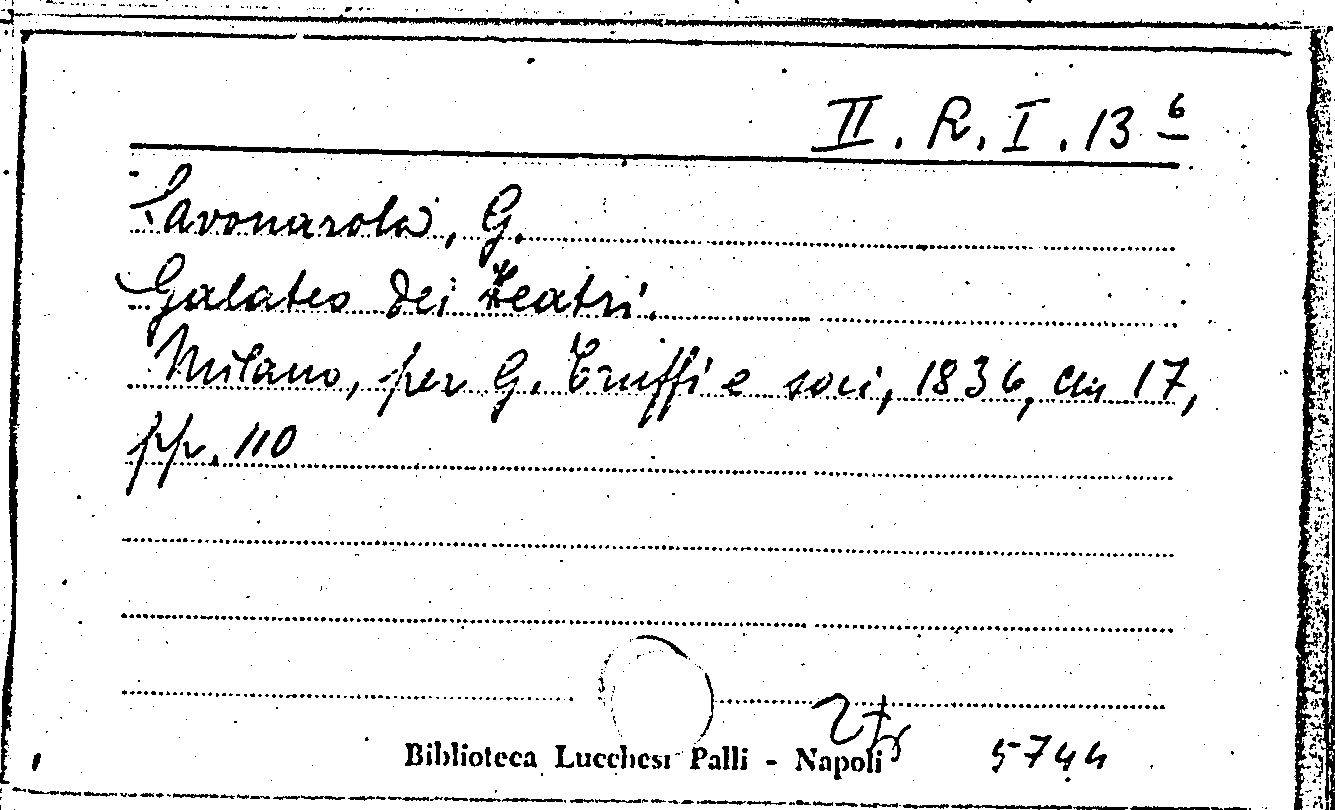 II. R. I. 13 6
Savonarola, G.
Galateo dei Teatri.
Milano, per G. Truffi e soci, 1836, cm 17,
pp. 110
Biblioteca Lucchesi Palli - Napoli
5744